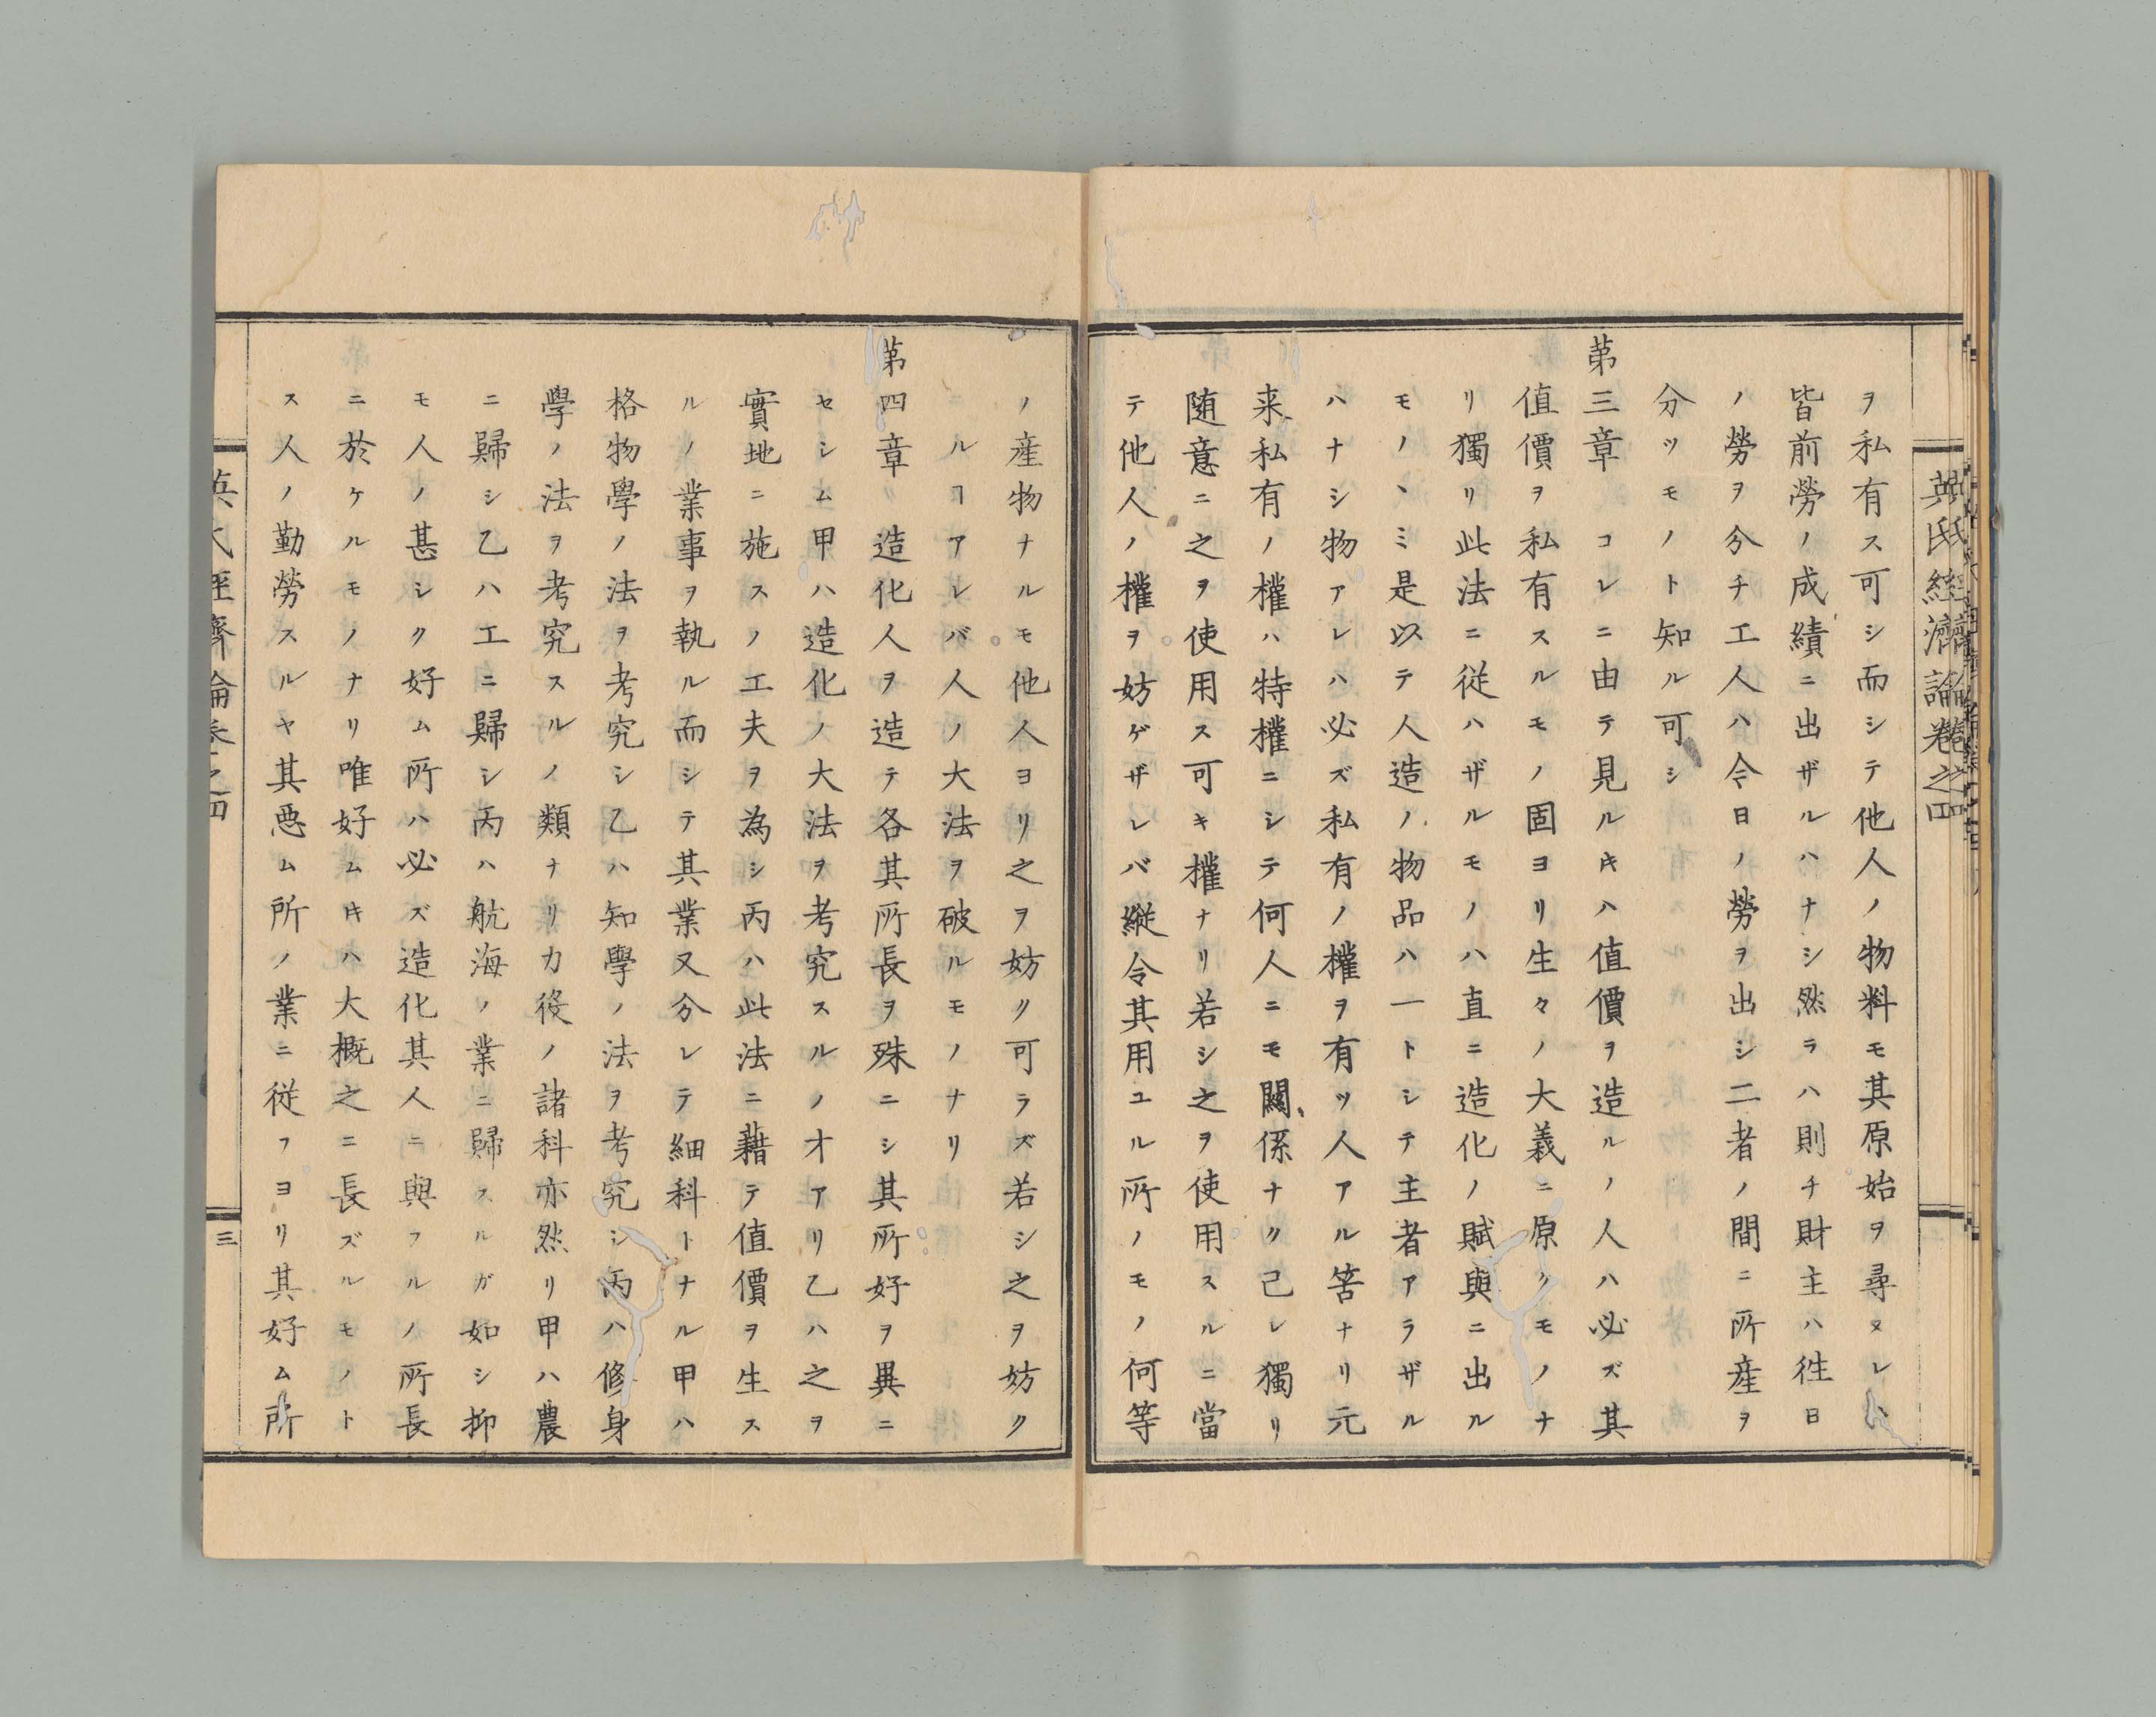 英氏經濟論卷之四
ヲ私有ス可シ而シテ他人ノ物料モ其原始ヲ尋ヌレハ
皆前勞ノ成績ニ出ザルハナシ然ラハ則チ財主ハ徃日
ノ勞ヲ分チ工人ハ今日ノ勞ヲ出シ二者ノ間ニ所産ヲ
分ツモノト知ル可シ
第三章 コレニ由テ見ルキハ値價ヲ造ルノ人ハ必ズ其
値價ヲ私有スルモノ固ヨリ生々ノ大義ニ原クモノナ
リ獨リ此法ニ從ハザルモノハ直ニ造化ノ賦與ニ出ル
モノヽミ是以テ人造ノ物品ハ一トシテ主者アラザル
ハナシ物アレハ必ズ私有ノ權ヲ有ツ人アル筈ナリ元
来私有ノ權ハ特權ニシテ何人ニモ關係ナク己レ獨リ
随意ニ之ヲ使用ス可キ權ナリ若シ之ヲ使用スルニ當
テ他人ノ權ヲ妨ゲザレバ縱令其用ユル所ノモノ何等
ノ産物ナルモ他人ヨリ之ヲ妨ク可ラズ若シ之ヲ妨ク
ルヿアレバ人ノ大法ヲ破ルモノナリ
第四章 造化人ヲ造テ各其所長ヲ殊ニシ其所好ヲ異ニ
セシム甲ハ造化ノ大法ヲ考究スルノオアリ乙ハ之ヲ
實地ニ施スノ工夫ヲ為シ丙ハ此法ニ藉テ値價ヲ生ス
ルノ業事ヲ執ル而シテ其業又分レテ細科トナル甲ハ
格物學ノ法ヲ考究シ乙ハ知學ノ法ヲ考究シ丙ハ修身
學ノ法ヲ考究スルノ類ナリ力役ノ諸科亦然リ甲ハ農
ニ歸シ乙ハ工ニ歸シ丙ハ航海ノ業ニ歸スルガ如シ抑
モ人ノ甚シク好ム所ハ必ズ造化其人ニ與フルノ所長
ニ於ケルモノナリ唯好ムキハ大概之ニ長ズルモノト
ス人ノ勤勞スルヤ其惡ム所ノ業ニ從フヨリ其好ム所
英氏經濟論卷之四
三